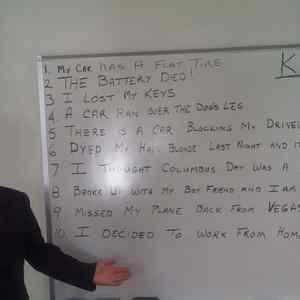 1. My Car has A Flat Tire
2 The Battery Died!
3 I Lost My Keys
4. A Car Ran Over The Dog's Leg
5 There is A Car Blocking My
6 Dyed My Hair Blonde Last Night And
7 I Thought Columbus Day Was A
8 Broke Up with My Boy Friend And I Am
9 Missed My Plane Back From Vegas
10. I Decided To Work From
K